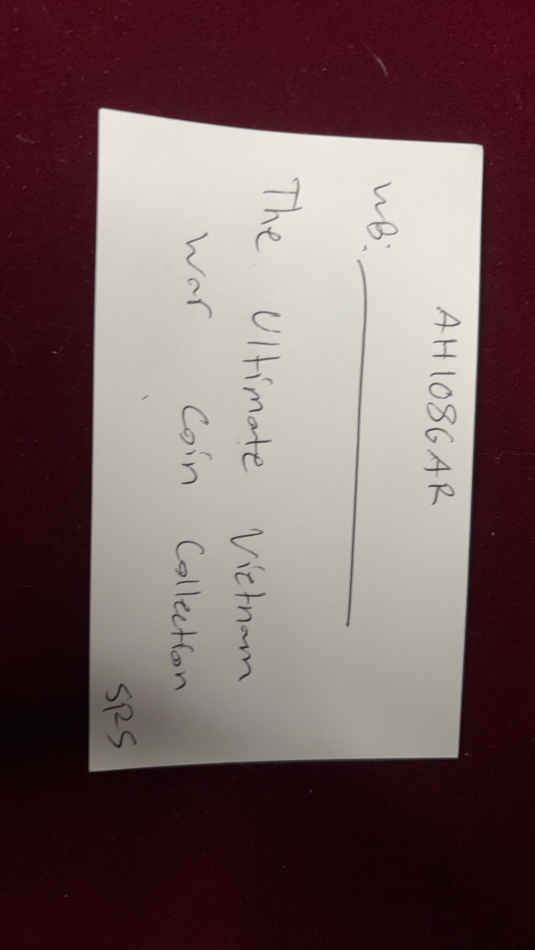 AH1086AR
WB: ____________
The Ultimate Vietnam
War Coin Collection
SRS